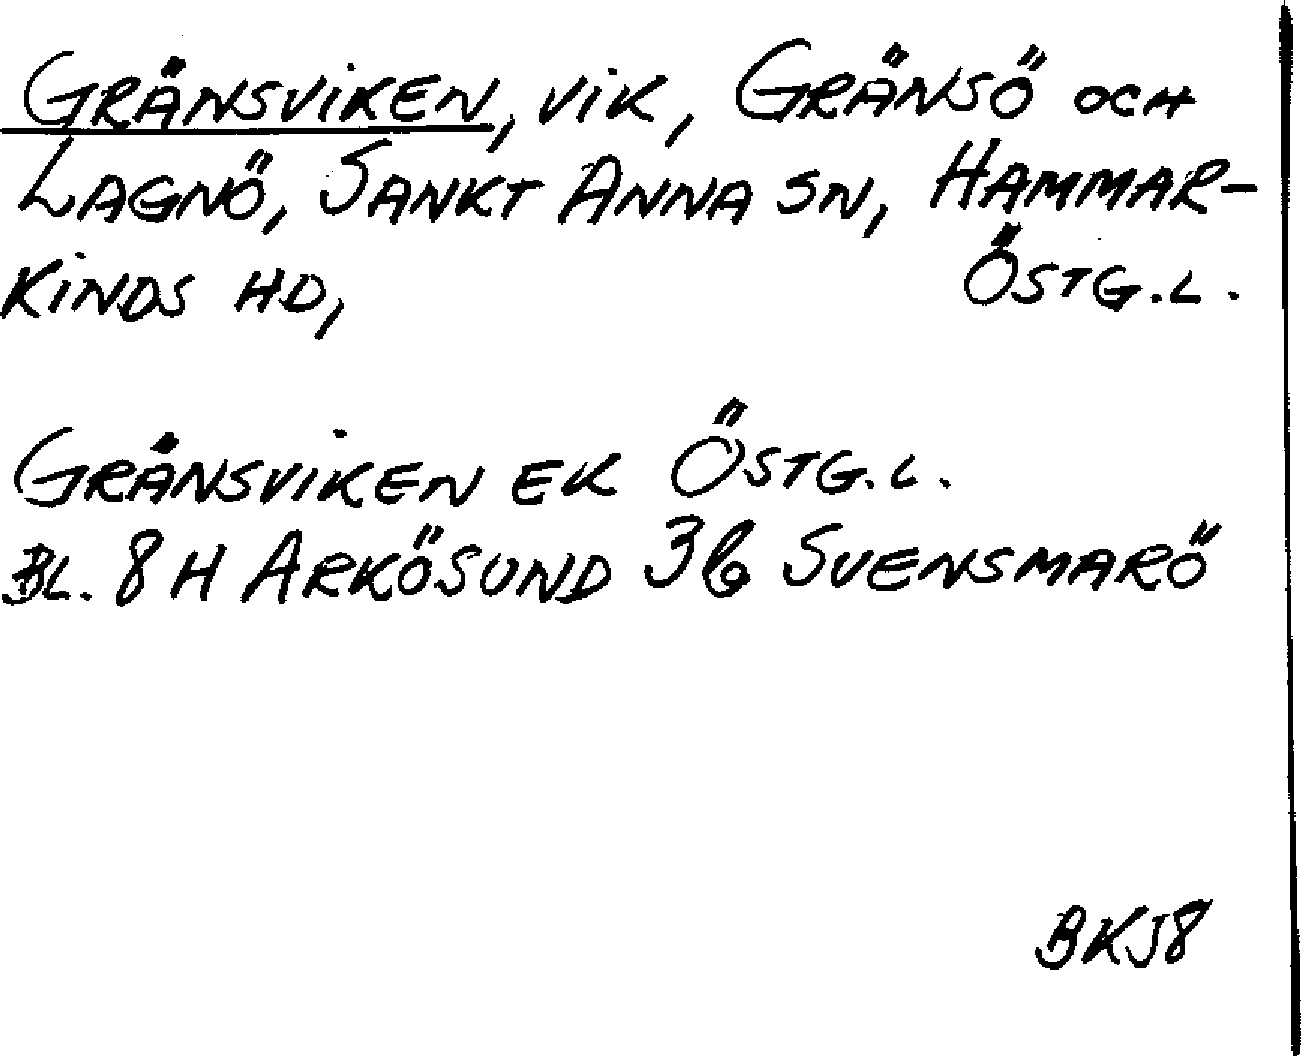 GRÄNSVIKEN, VIK, GRÄNSÖ OCH
LAGNÖ, SANKT ANNA SN, HAMMAR-
KINDS HD, ÖSTG.L.
GRÄNSVIKEN EK ÖSTG.L.
BL. 8H ARKÖSUND 3b SVENSMARÖ
BKJ8